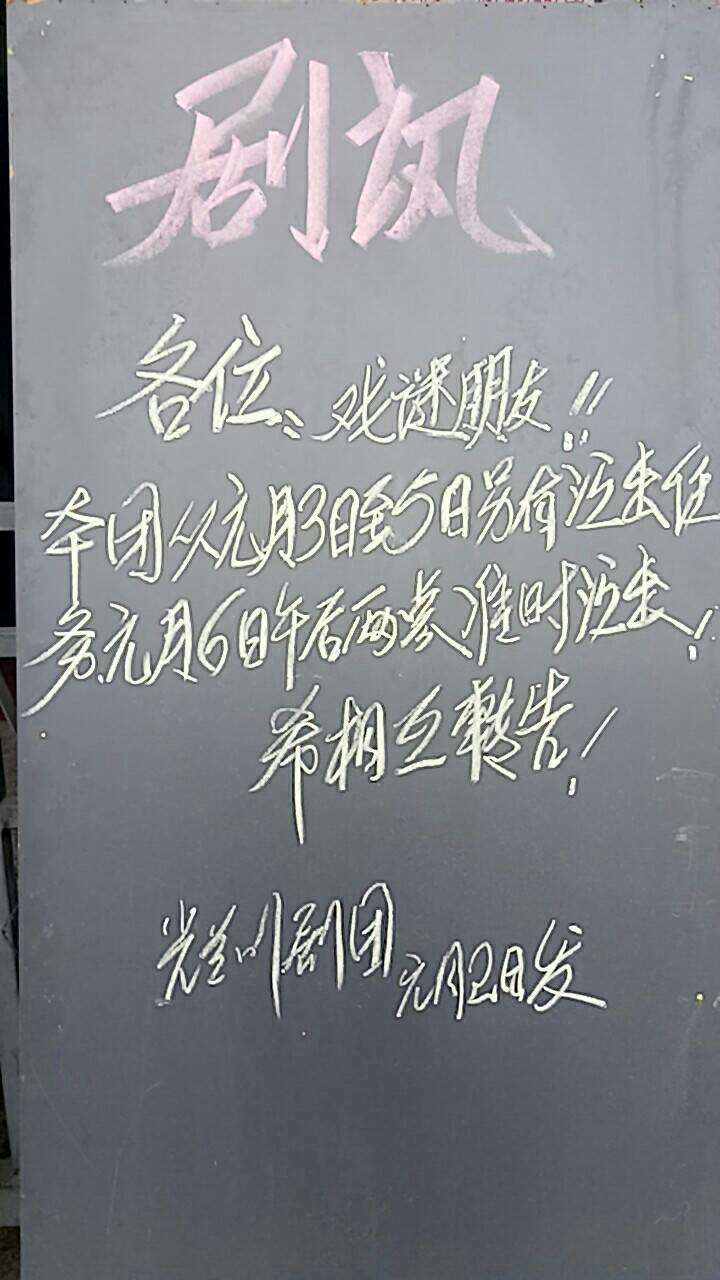 剧讯
各位、戏谜朋友!!
本团从元月3日至5日另有演出任
务、元月6日午后两点准时演出!
希相互转告!
光兰川剧团 元月2日发